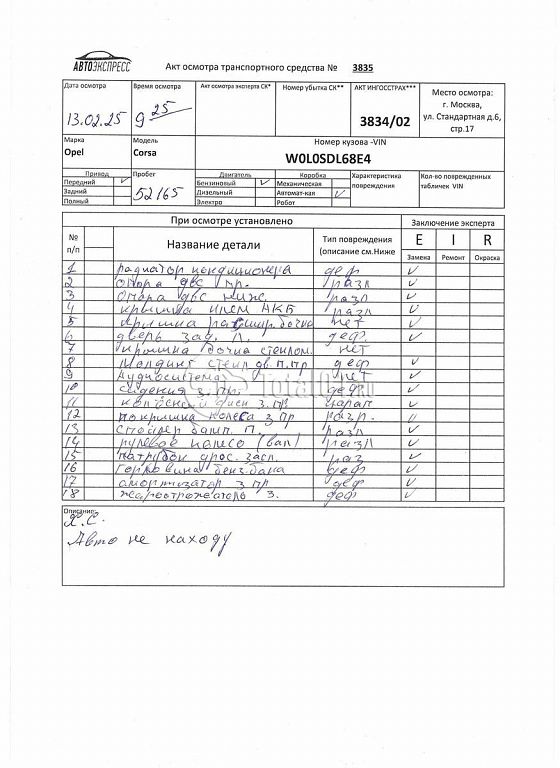 АВТОЭКСПРЕСС
Акт осмотра транспортного средства № 3835
Дата осмотра Время осмотра Акт осмотра эксперта СК* Номер убытка СК** АКТ ИНГОССТРАХ*** Место осмотра:
13.02.25 9 25 3834/02 г. Москва,
ул. Стандартная д.6,
стр.17
Марка Модель Номер кузова -VIN
Opel Corsa W0L0SDL68E4
Привод Пробег Двигатель Коробка Характеристика повреждения Кол-во поврежденных табличек VIN
Передний ✓ 52165 Бензиновый ✓ Механическая
Задний Дизельный Автомат-кая ✓
Полный Электро Робот
При осмотре установлено Заключение эксперта
№ п/п Название детали Тип повреждения (описание см.Ниже E I R
Замена Ремонт Окраска
1 радиатор кондиционера деф ✓
2 Опора двс пр. разл ✓
3 Опора двс ниж. разл ✓
4 крышка клем АКБ разл ✓
5 крышка расшир. бочка нет ✓
6 дверь зад. л. деф ✓
7 крышка бочка стеклом. нет
8 Молдинг стекл дв. п.пр деф ✓
9 Аудиосистема нет ✓
10 сидения з. пр. деф ✓
11 колёсный диск з. пр царап ✓
12 покришка колеса з пр разр.
13 спойлер бамп. п. разл ✓
14 рулевое колесо (вал) разл ✓
15 патрубок дрос. засл. раз ✓
16 горловина бенз. бака деф ✓
17 амортизатор з пр деф ✓
18 жароотрожатель з. деф ✓
Описание:
Х.С.
Авто не находу